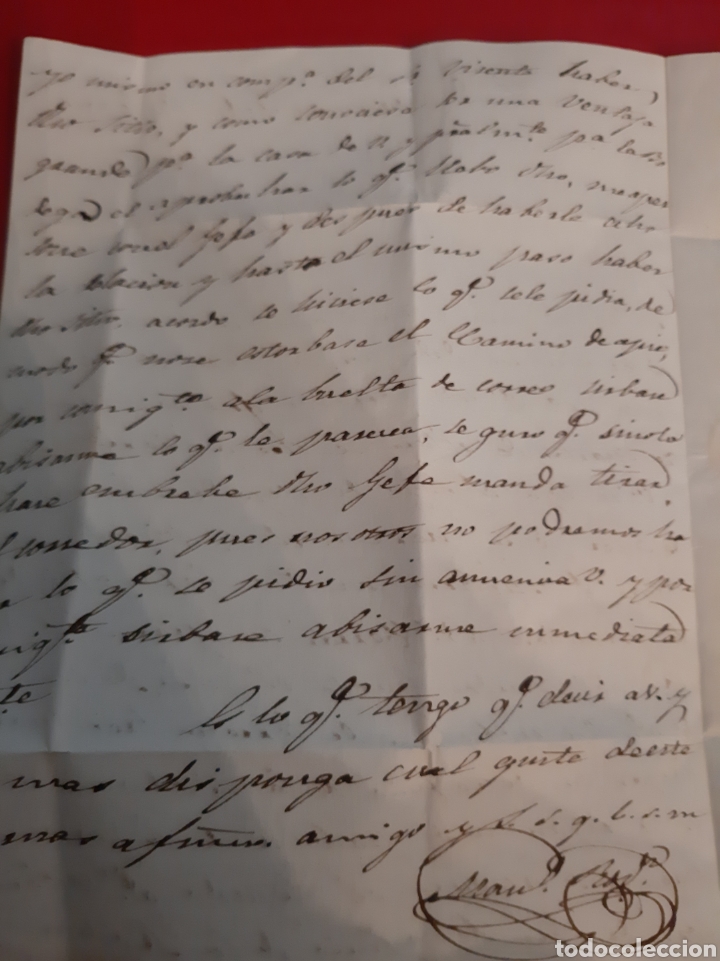 yo mismo en comp.ª del Sr Visente haber
dho sitio, y como conociera ser una ventaja
guando p.ª la casa de V y p.ª
el aprobechar lo q.e dho,
con el Jefe y despues de haberle echo
la relacion y hasta el mismo paso haber
dho sitio, acordo se hiciese lo q.e sele pidia, de
modo q.e nose estorbase el Camino de
por consig.te ala buelta de correo sirbase
abisarme lo q.e le paresca, seguro q.e sinola
hase embrebe dho Gefe manda tirar
l corredor, pues nosotros no podremos ha
lo q.e se pidio sin anuensia V. y por
sig.te sirbase abisarme inmediata
te
Es lo q.e tengo q.e desir a V. y
mas disponga cual guste de este
mas afmo. amigo y S. S. q. b. s. m
Man.l
todocoleccion